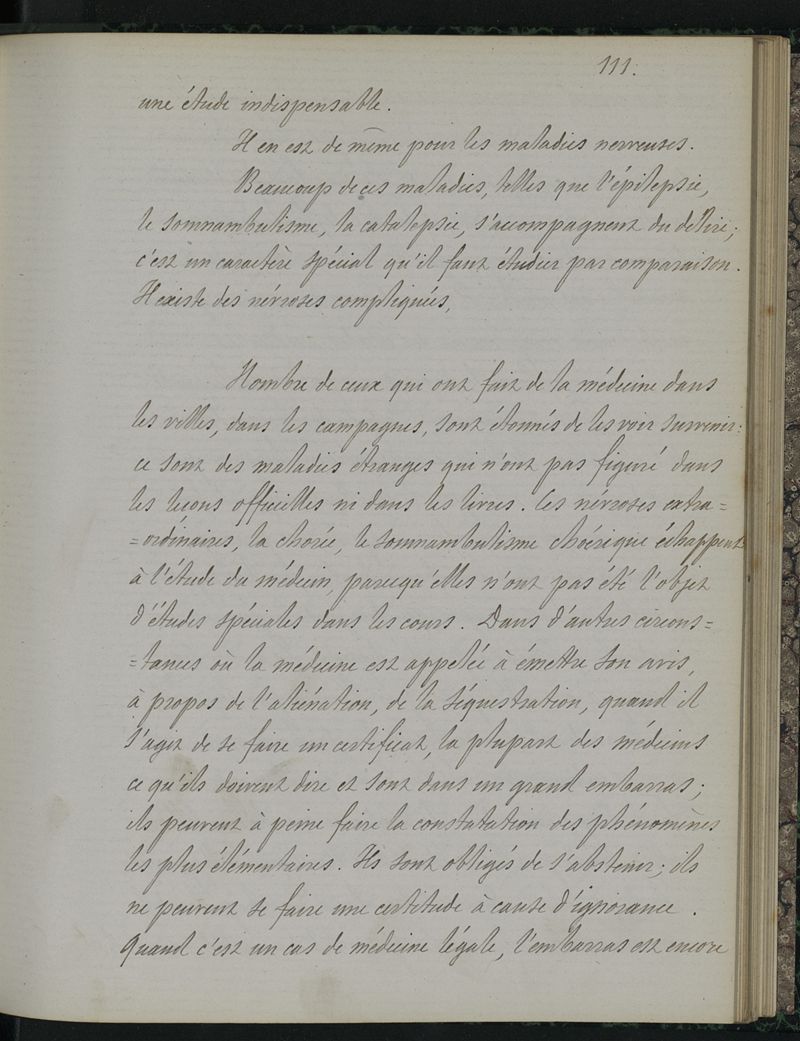 111.
une étude indispensable.
Il en est de même pour les maladies nerveuses.
Beaucoup de ces maladies, telles que l'épilepsie,
le somnambulisme, la catalepsie, s'accompagnent du délire;
c'est un caractère spécial qu'il faut étudier par comparaison.
Il existe des névroses compliquées,
Nombre de ceux qui ont fait de la médecine dans
les villes, dans les campagnes, sont étonnés de les voir survenir:
ce sont des maladies étranges qui n'ont pas figuré dans
les leçons officielles ni dans les livres. Ces névroses extra=
=ordinaires, la chorée, le somnambulisme choérique échappent
à l'étude du médecin, parcequ'elles n'ont pas été l'objet
d'études spéciales dans les cours. Dans d'autres circons=
=tances où la médecine est appelée à émettre son avis,
à propos de l'aliénation, de la séquestration, quand il
s'agit de se faire un certificat, la plupart des médecins
ce qu'ils doivent dire et sont dans un grand embarras;
ils peuvent à peine faire la constatation des phénomènes
les plus élémentaires. Ils sont obligés de s'abstenir; ils
ne peuvent se faire une certitude à cause d'ignorance.
Quand c'est un cas de médecine légale, l'embarras est encore